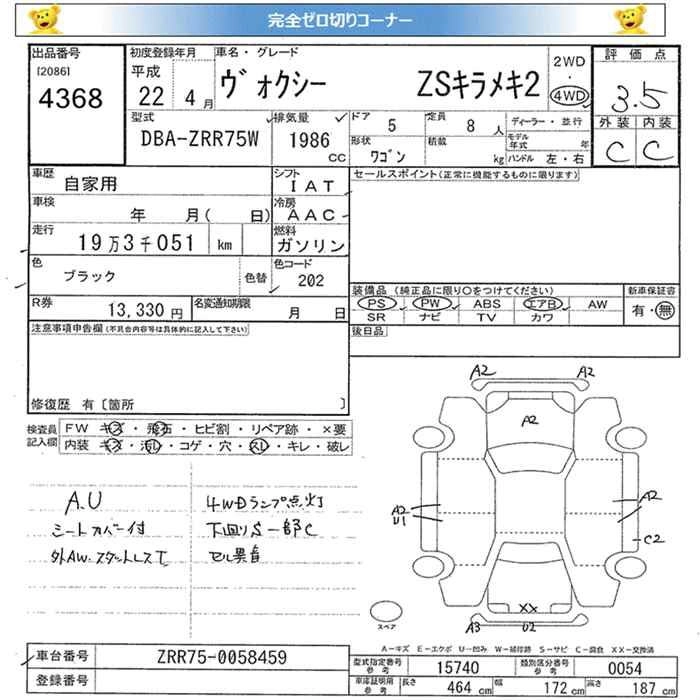 完全ゼロ切りコーナー
出品番号
[2086]
4368
初度登録年月
平成
22 4 月
車名・グレード
ヴォクシー ZSキラメキ2
2WD
・
4WD
評価点
3.5
外装 内装
C C
型式
DBA-ZRR75W
排気量
1986
CC
ドア
5
定員
8 人
形状
ワゴン
積載
kg
ディーラー・並行
モデル年式 年
ハンドル 左・右
車歴
自家用
シフト
IAT
セールスポイント(正常に機能するものに限ります)
車検
年 月( 日)
冷房
AAC
走行
19万3千051 km
燃料
ガソリン
色
ブラック
色替
色コード
202
装備品 (純正品に限り○をつけてください)
PS PW ABS エアB AW
SR ナビ TV カワ
新車保証書
有・無
R券
13,330 円
名変通知期限
月 日
後日品
注意事項申告欄(不具合内容等は具体的に記入して下さい)
修復歴 有〔箇所 〕
検査員記入欄
FW キズ・飛石・ヒビ割・リペア跡・×要
内装 キズ・汚れ・コゲ・穴・スレ・キレ・破レ
A.U
シートカバー付
外AW.スタットレスT
4WDランプ点灯
下回りS一部C
セル異音
A2 A2
A2
A2
U1
A2
C2
XX
A3 U2
スペア
A-キズ E-エクボ U-凹み W-補修跡 S-サビ C-腐食 XX-交換済
車台番号
ZRR75-0058459
登録番号
型式指定番号
参考
15740
類別区分番号
参考
0054
車庫証明用
参考
長さ 464 cm 幅 172 cm 高さ 187 cm